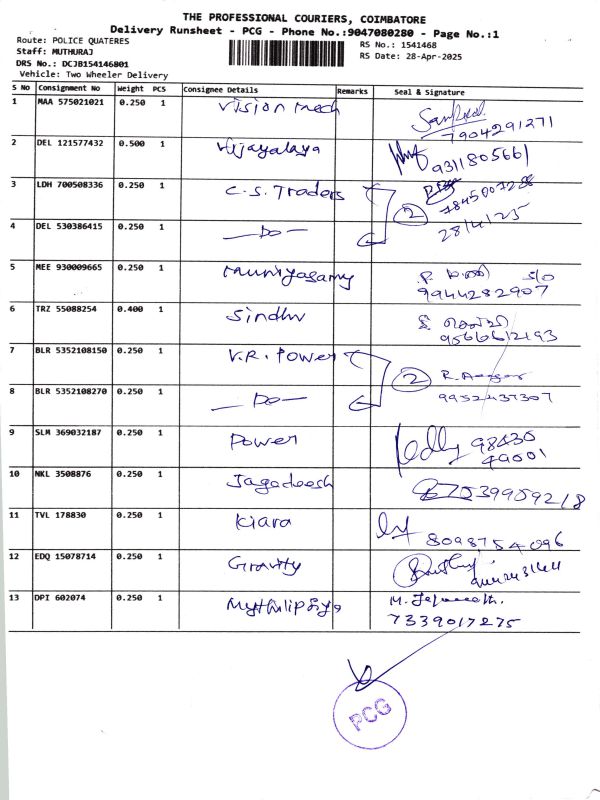 THE PROFESSIONAL COURIERS, COIMBATORE
Delivery Runsheet - PCG - Phone No.:9047080280 - Page No.:1
Route: POLICE QUATERES
RS No.: 1541468
Staff: MUTHURAJ
RS Date: 28-Apr-2025
DRS No.: DCJB154146801
Vehicle: Two Wheeler Delivery
S No Consignment No Weight PCS Consignee Details Remarks Seal & Signature
1 MAA 575021021 0.250 1 Vision Mech
7904291271
2 DEL 121577432 0.500 1 Vijayalaya 9311805661
3 LDH 700508336 0.250 1 C.S. Traders
2
28/4/25
4 DEL 530386415 0.250 1 —Do—
5 MEE 930009665 0.250 1 Muniyasamy S/O
9944282907
6 TRZ 55088254 0.400 1 Sindhu
9566612193
7 BLR 5352108150 0.250 1 V.R. Power
2 R.
9952437307
8 BLR 5352108270 0.250 1 —Do—
9 SLM 369032187 0.250 1 Power 98430
49001
10 NKL 3508876 0.250 1 Jagadeesh
11 TVL 178830 0.250 1 Kiara
8098754096
12 EDQ 15078714 0.250 1 Gravity
13 DPI 602074 0.250 1 Mythilipriya M.
7339017275
PCG